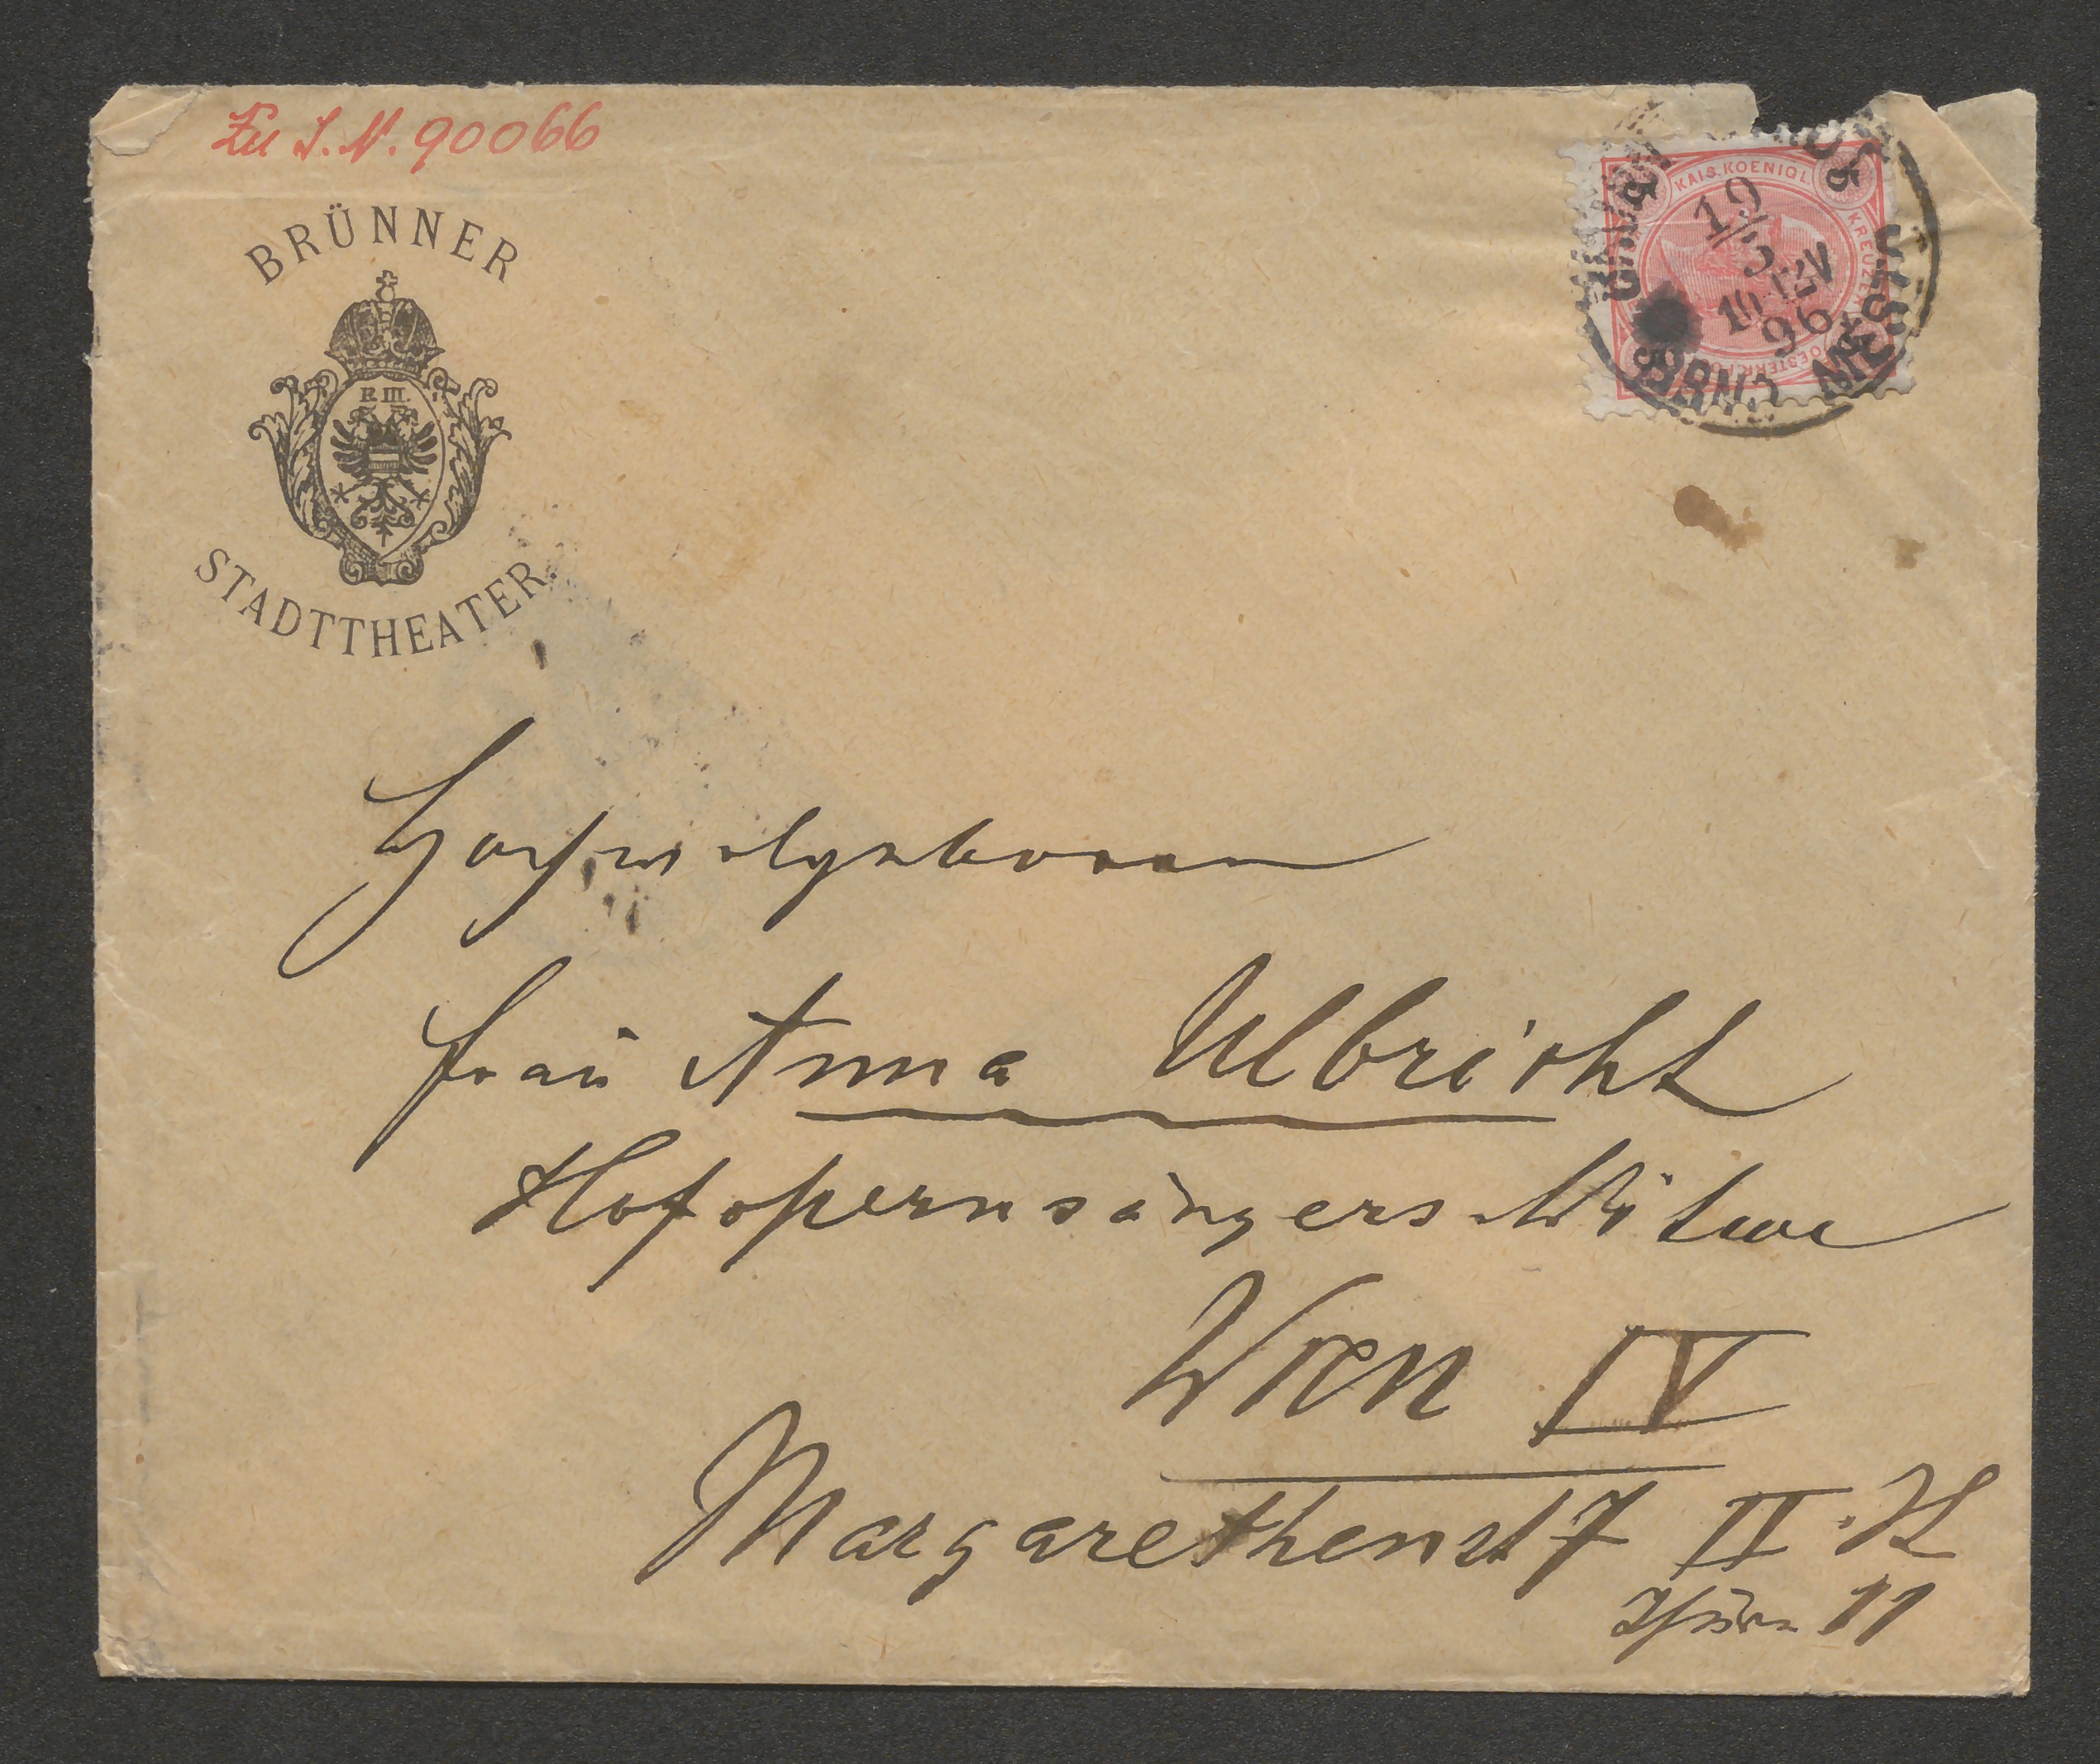 Zu I. N. 90066
BRÜNNER
F. III.
STADTTHEATER.
KAIS. KOENIGL.
5 5
KREUZER
19/3
10-12V
96
BRNO MĚSTO
Hochwolgeboren
Frau Anna Ulbricht
Hofopernsängers Witwe
Wien IV
Margarethenst 7 II. St
Thüre 11